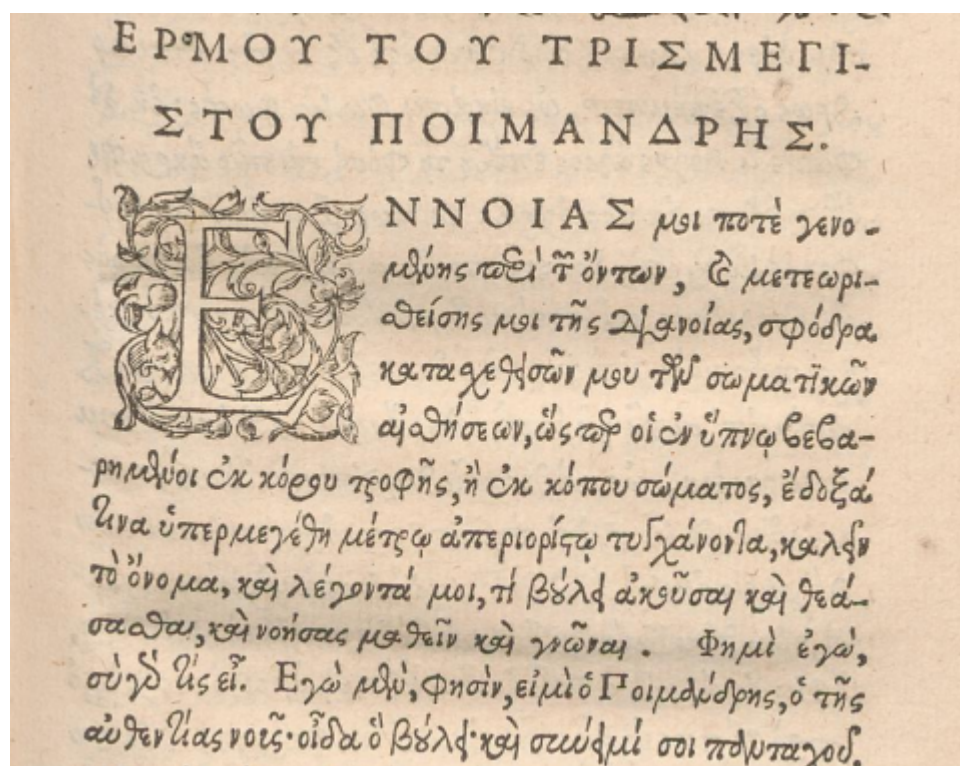 ΕΡΜΟΥ ΤΟΥ ΤΡΙΣΜΕΓΙ-
ΣΤΟΥ ΠΟΙΜΑΝΔΡΗΣ.
ΕΝΝΟΙΑΣ μοι ποτὲ γενο-
μένης περὶ τῶν ὄντων, καὶ μετεωρι-
σθείσης μοι τῆς διανοίας, σφόδρα
κατασχεθεισῶν μου τῶν σωματικῶν
αἰσθήσεων, ὥσπερ οἱ ἐν ὕπνῳ βεβα-
ρημένοι ἐκ κόρου τροφῆς, ἢ ἐκ κόπου σώματος, ἔδοξά
τινα ὑπερμεγέθη μέτρῳ ἀπεριορίστῳ τυγχάνοντα, καλεῖν
τὸ ὄνομα, καὶ λέγοντά μοι, τί βούλει ἀκοῦσαι καὶ θεά-
σασθαι, καὶ νοήσας μαθεῖν καὶ γνῶναι. Φημὶ ἐγώ,
σὺ γὰρ τίς εἶ. Ἐγὼ μέν, φησίν, εἰμὶ ὁ Ποιμάνδρης, ὁ τῆς
αὐθεντίας νοῦς· οἶδα ὃ βούλει· καὶ σύνειμί σοι πανταχοῦ.